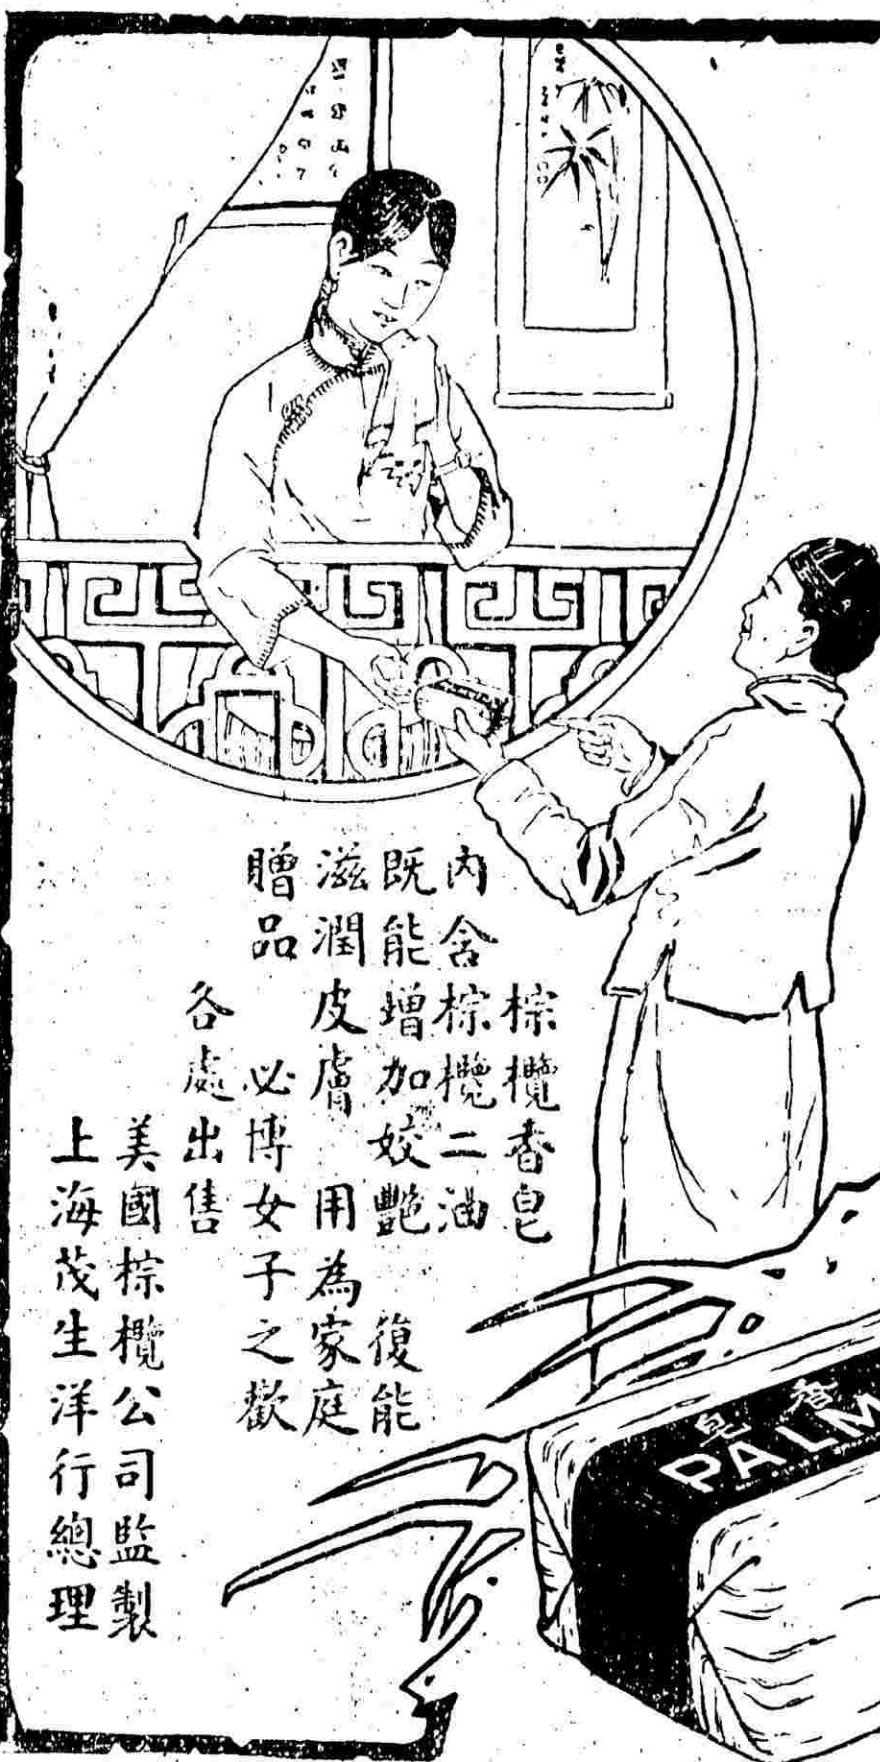 棕欖香皂
內含棕欖二油
既能增加姣艷　復能
滋潤皮膚　用為家庭
贈品　必博女子之歡
各處出售
美國棕欖公司監製
上海茂生洋行總理
香皂
PALM